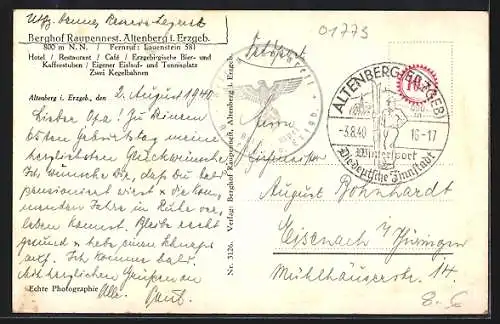 01773
Berghof Raupennest, Altenberg i. Erzgeb.
800 m N. N. / Fernruf: Lauenstein 581
Hotel / Restaurant / Café / Erzgebirgische Bier- und
Kaffeestuben / Eigener Eislauf- und Tennisplatz
Zwei Kegelbahnen
Feldpost
Altenberg i. Erzgeb., den 2. August 1940
Lieber Opa! Zu Deinem
Geburtstag meine
herzlichsten Glückwünsche.
Ich wünsche Dir, daß Du bald
pensioniert wirst & die kom-
menden Jahre in Ruhe ver-
leben kannst. Bleibe recht
gesund & hebe einen Schnaps
auf. Ich komme bald.
Mit herzlichen Grüßen an
Alle.
Echte Photographie
Nr. 3126. Verlag: Berghof Raupennest, Altenberg i. Erzgeb.
ALTENBERG (ERZGEB)
-3.8.40 16-17
Wintersport
Die deutsche Zinnstadt
Herrn
August Bohnhardt
Eisenach i/Thüringen
Mühlhäuserstr. 14.